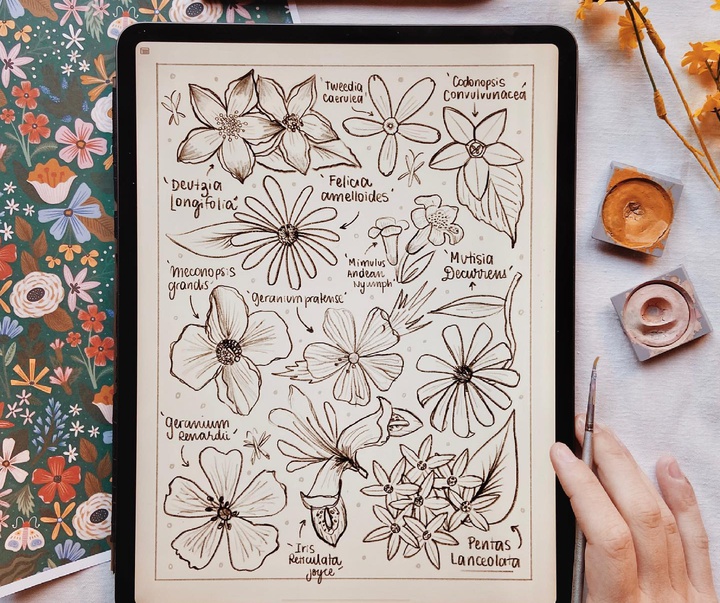 'Tweedia
caerulea'
'Codonopsis
Convulvunacea'
'Deutzia
Longifolia'
'Felicia
amelloides'
'Mimulus
Andean
Nymph'
'Mutisia
Decurrens'
'Meconopsis
grandis'
'geranium pratense'
'geranium
Renardii'
'Iris
Reticulata
joyce'
'Pentas
Lanceolata